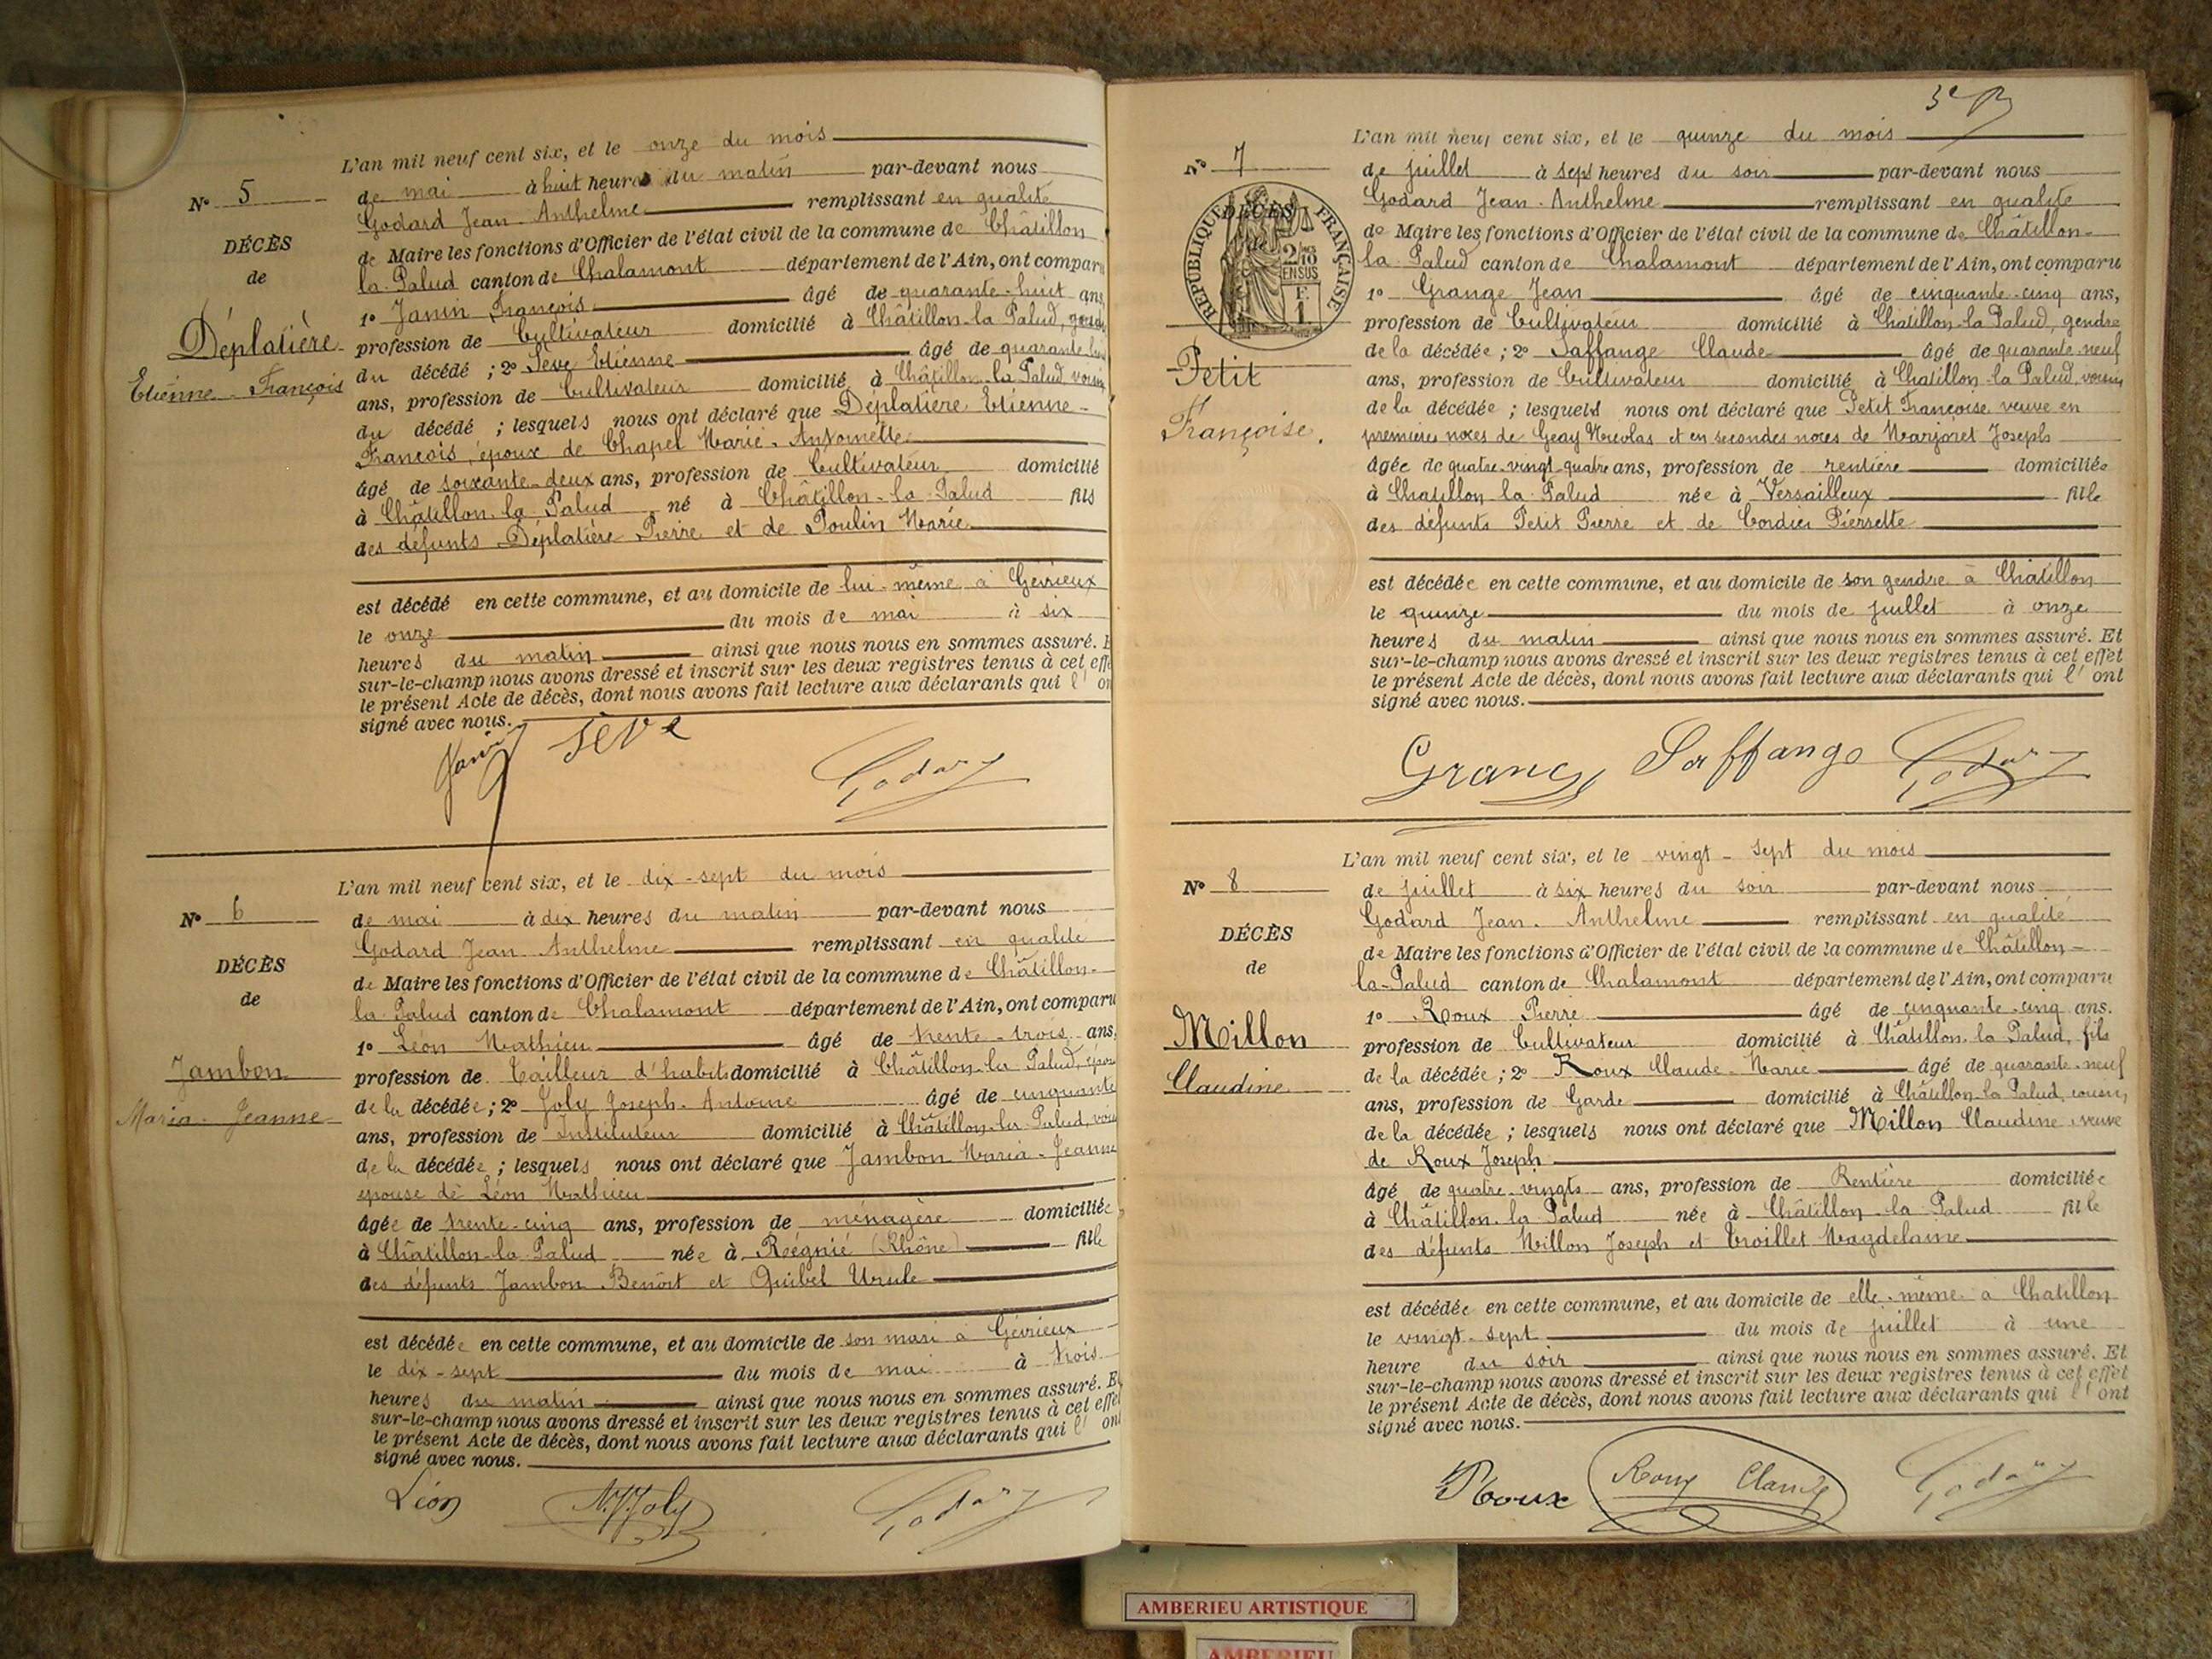 L'an mil neuf cent six, et le onze du mois
N° 5
de mai à huit heures du matin par-devant nous
Godard Jean Anthelme remplissant en qualité
DÉCÈS
de Maire les fonctions d'Officier de l'état civil de la commune de Châtillon
de
la Palud canton de Chalamont département de l'Ain, ont comparu
1° Janin François âgé de quarante-huit ans,
Déplatière
profession de Cultivateur domicilié à Châtillon-la Palud,
Etienne-François
du décédé ; 2° Sève Etienne âgé de quarante
ans, profession de Cultivateur domicilié à Châtillon-la Palud voisin
du décédé ; lesquels nous ont déclaré que Déplatière Etienne-
François, époux de Chapel Marie-Antoinette
âgé de soixante-deux ans, profession de Cultivateur domicilié
à Châtillon-la Palud né à Châtillon-la Palud fils
des défunts Déplatière Pierre et de Poulin Marie
est décédé en cette commune, et au domicile de lui-même à Gévrieux
le onze du mois de mai à six
heures du matin ainsi que nous nous en sommes assuré. E
sur-le-champ nous avons dressé et inscrit sur les deux registres tenus à cet effe
le présent Acte de décès, dont nous avons fait lecture aux déclarants qui l' on
signé avec nous.
Janin Sève Godard
L'an mil neuf cent six, et le dix-sept du mois
N° 6
de mai à dix heures du matin par-devant nous
Godard Jean Anthelme remplissant en qualité
DÉCÈS
de Maire les fonctions d'Officier de l'état civil de la commune de Châtillon-
de
la Palud canton de Chalamont département de l'Ain, ont comparu
1° Léon Mathieu âgé de trente-trois ans,
Jambon
profession de Tailleur d'habits domicilié à Châtillon-la Palud, époux
Maria-Jeanne
de la décédée ; 2° Joly Joseph-Antoine âgé de cinquante
ans, profession de Instituteur domicilié à Châtillon-la Palud, vois
de la décédée ; lesquels nous ont déclaré que Jambon Maria-Jeanne
épouse de Léon Mathieu
âgée de trente-cinq ans, profession de ménagère domiciliée
à Châtillon-la Palud née à Régnié (Rhône) fille
des défunts Jambon Benoit et Quibel Ursule
est décédée en cette commune, et au domicile de son mari à Gévrieux
le dix-sept du mois de mai à trois
heures du matin ainsi que nous nous en sommes assuré. E
sur-le-champ nous avons dressé et inscrit sur les deux registres tenus à cet effet
le présent Acte de décès, dont nous avons fait lecture aux déclarants qui l' ont
signé avec nous.
Léon Joly Godard
L'an mil neuf cent six, et le quinze du mois
N° 7
de juillet à sept heures du soir par-devant nous
Godard Jean-Anthelme remplissant en qualité
DÉCÈS
RÉPUBLIQUE FRANÇAISE
2/10 EN SUS
F. 1
de Maire les fonctions d'Officier de l'état civil de la commune de Châtillon-
la Palud canton de Chalamont département de l'Ain, ont comparu
1° Grange Jean âgé de cinquante-cinq ans,
profession de Cultivateur domicilié à Châtillon-la Palud, gendre
Petit
de la décédée ; 2° Saffange Claude âgé de quarante-neuf
ans, profession de Cultivateur domicilié à Châtillon-la Palud voisin
Françoise.
de la décédée ; lesquels nous ont déclaré que Petit Françoise veuve en
premières noces de Geay Nicolas et en secondes noces de Marjoret Joseph
âgée de quatre-vingt-quatre ans, profession de rentière domiciliée
à Châtillon-la Palud née à Versailleux fille
des défunts Petit Pierre et de Cordier Pierrette
est décédée en cette commune, et au domicile de son gendre à Châtillon
le quinze du mois de juillet à onze
heures du matin ainsi que nous nous en sommes assuré. Et
sur-le-champ nous avons dressé et inscrit sur les deux registres tenus à cet effet
le présent Acte de décès, dont nous avons fait lecture aux déclarants qui l' ont
signé avec nous.
Grange Saffange Godard
L'an mil neuf cent six, et le vingt-sept du mois
N° 8
de juillet à six heures du soir par-devant nous
Godard Jean-Anthelme remplissant en qualité
DÉCÈS
de Maire les fonctions d'Officier de l'état civil de la commune de Châtillon-
de
la-Palud canton de Chalamont département de l'Ain, ont comparu
1° Roux Pierre âgé de cinquante-cinq ans.
Millon
profession de Cultivateur domicilié à Châtillon-la Palud, fils
Claudine
de la décédée ; 2° Roux Claude-Marie âgé de quarante-neuf
ans, profession de Garde domicilié à Châtillon-la Palud, cousin,
de la décédée ; lesquels nous ont déclaré que Millon Claudine, veuve
de Roux Joseph
âgée de quatre-vingts ans, profession de Rentière domiciliée
à Châtillon-la Palud née à Châtillon-la Palud fille
des défunts Millon Joseph et Troillet Magdelaine
est décédée en cette commune, et au domicile de elle-même à Châtillon
le vingt-sept du mois de juillet à une
heure du soir ainsi que nous nous en sommes assuré. Et
sur-le-champ nous avons dressé et inscrit sur les deux registres tenus à cet effet
le présent Acte de décès, dont nous avons fait lecture aux déclarants qui l' ont
signé avec nous.
Roux Roux Claude Godard
AMBERIEU ARTISTIQUE
AMBERIEU